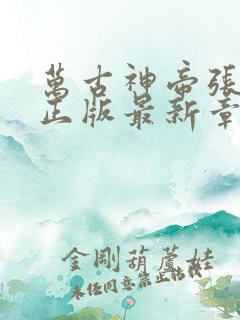 萬古神帝張
正版最新章
金剛葫蘆娃
未经同意禁止转载